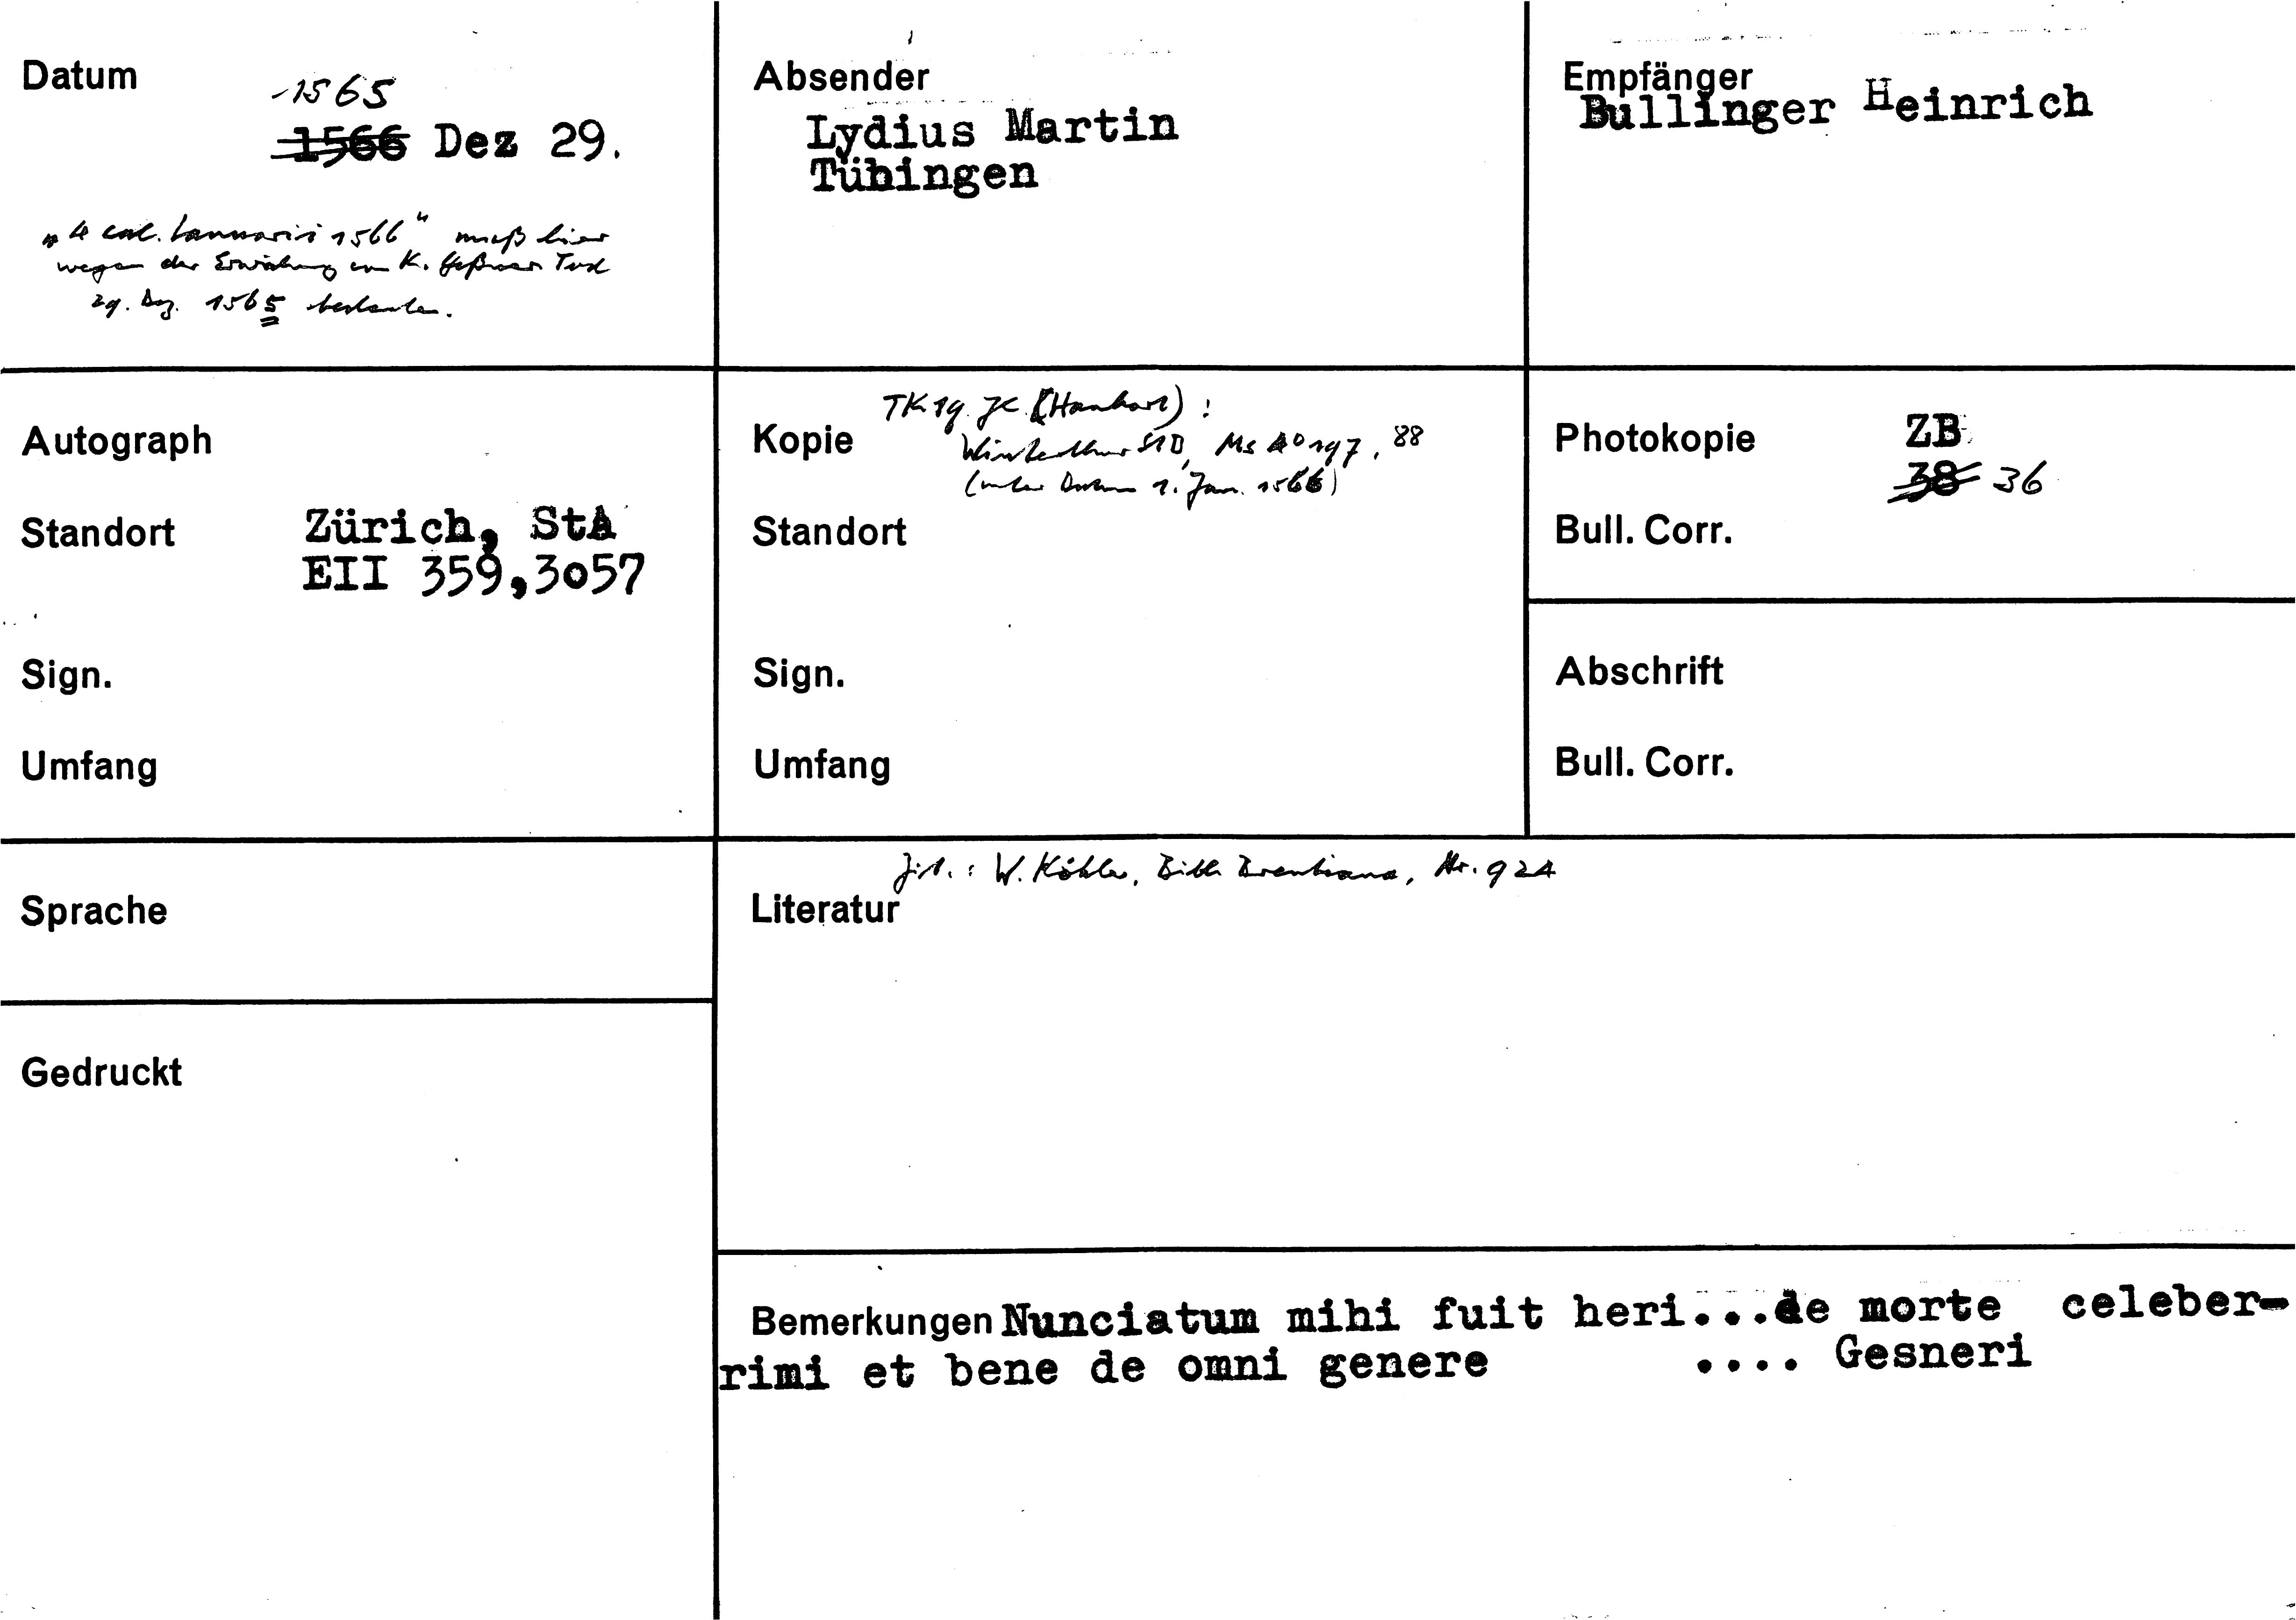 Datum
1565
1566 Dez 29.
"4 cal. Ianuarii 1566" muß hier
wegen der Erwähnung von K. Geßners Tod
29. Dez. 1565 bedeuten.
Absender
Lydius Martin
Tübingen
Empfänger
Bullinger Heinrich
Autograph
Standort Zürich, StA
EII 359,3057
Sign.
Umfang
TK 19. Jh. (Hanhart):
Kopie Winterthur StB, Ms A° 197, 88
(unter Datum 1. Jan. 1566)
Standort
Sign.
Umfang
Photokopie ZB
38 36
Bull. Corr.
Abschrift
Bull. Corr.
Sprache
Gedruckt
Zit.: W. Köhler, Bibl. Brentiana, Nr. 924
Literatur
Bemerkungen Nunciatum mihi fuit heri...de morte celeber-
rimi et bene de omni genere .... Gesneri